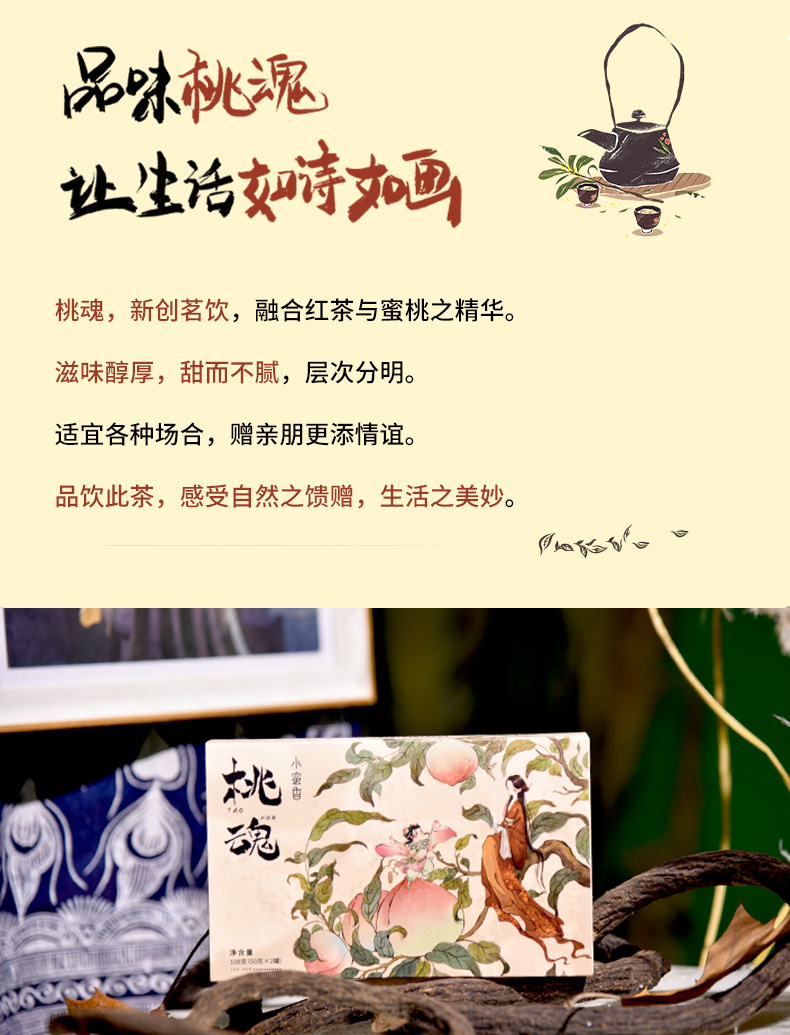 品味桃魂
让生活如诗如画
桃魂，新创茗饮，融合红茶与蜜桃之精华。
滋味醇厚，甜而不腻，层次分明。
适宜各种场合，赠亲朋更添情谊。
品饮此茶，感受自然之馈赠，生活之美妙。
小蜜香
桃
TAO HUN
魂
净含量
100克(50克×2罐)